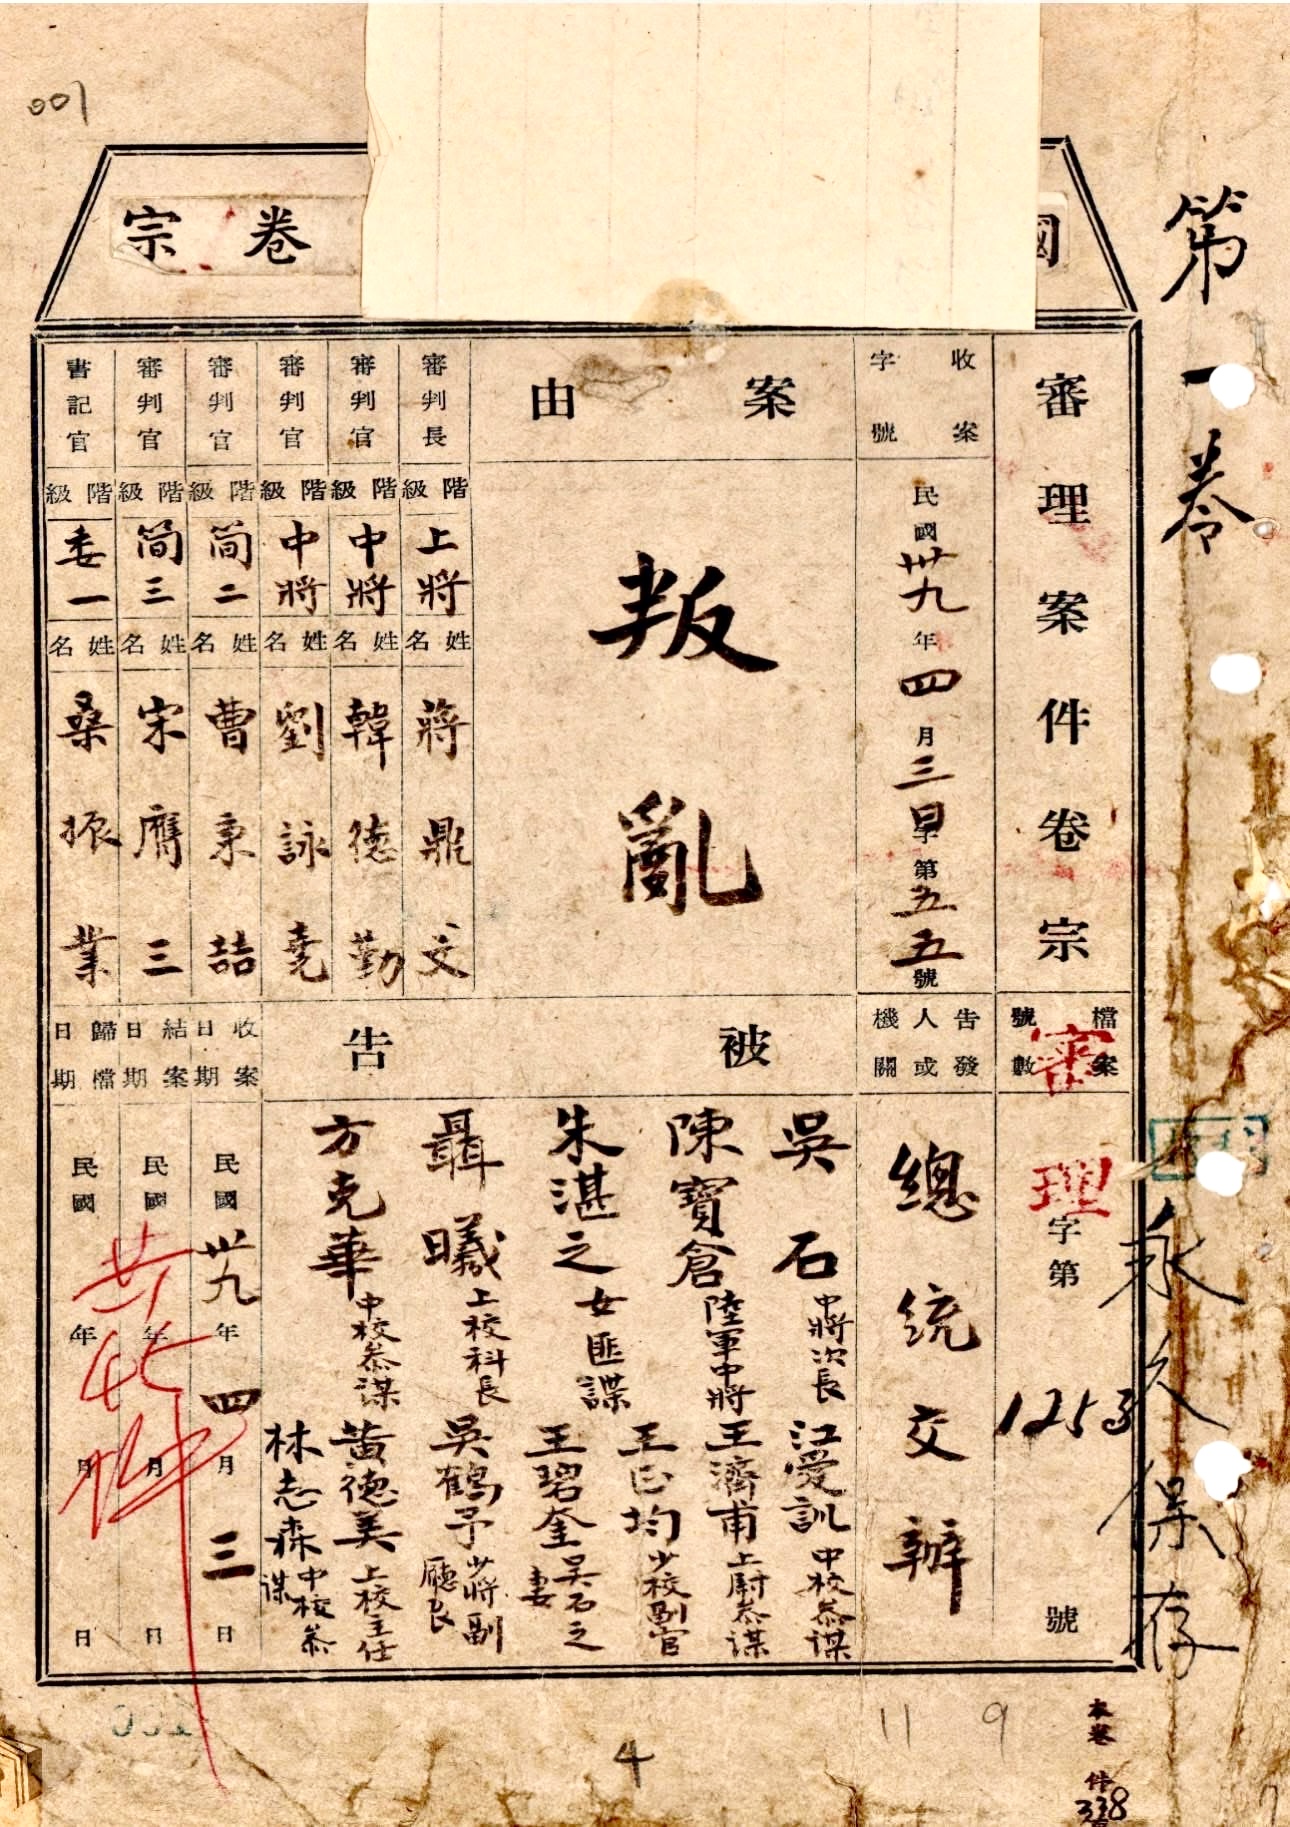 001
國
卷宗
第一卷
審理案件卷宗
檔案號數
審理字第1253號
永久保存
收案字號
民國卅九年四月三日字第五五號
告發人或機關
總統交辦
案由
叛亂
審判長
階級
上將
姓名
蔣鼎文
審判官
階級
中將
姓名
韓德勤
審判官
階級
中將
姓名
劉詠堯
審判官
階級
简二
姓名
曹秉喆
審判官
階級
简三
姓名
宋膺三
書記官
階級
委一
姓名
桑振業
被告
吳石 中將次長
江愛訓 中校叅謀
陳寶倉 陸軍中將
王濟甫 上尉叅謀
王正均 少校副官
朱湛之 女匪諜
王碧奎 吳石之妻
聶曦 上校科長
吳鶴予 少將副廳長
方克華 中校叅謀
黃德美 上校主任
林志森 中校叅謀
收案日期
民國卅九年四月三日
結案日期
民國 年 月 日
歸檔日期
民國 年 月 日
11 9
4
本卷 件
338